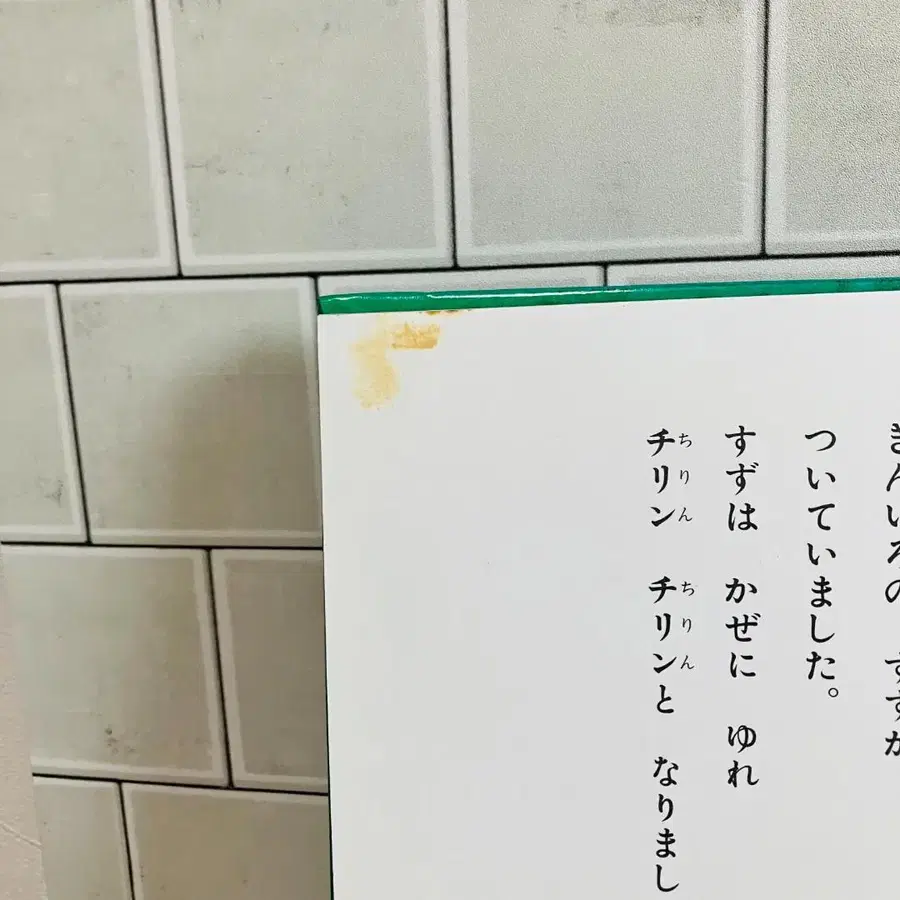 きんいろの すずが
ついていました。
すずは かぜに ゆれ
チリン チリンと なりまし
ちりん ちりん